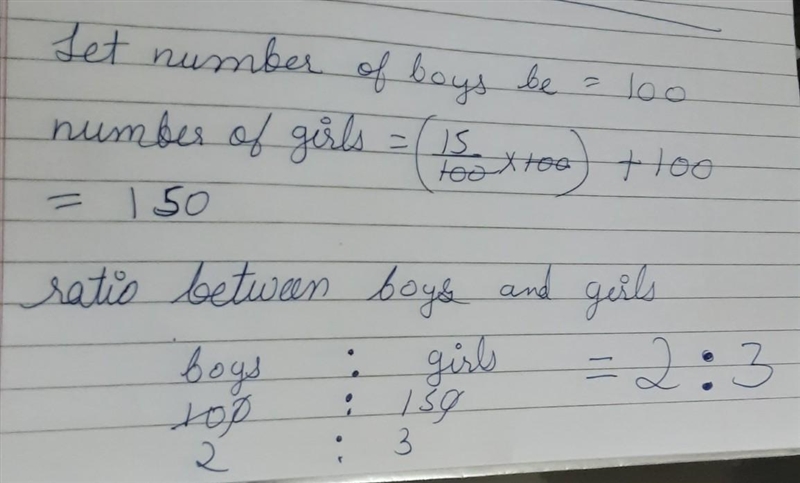 Let number of boys be = 100
number of girls = (15/100 × 100) + 100
= 150
ratio between boys and girls
boys : girls = 2 : 3
100 : 150
2 : 3